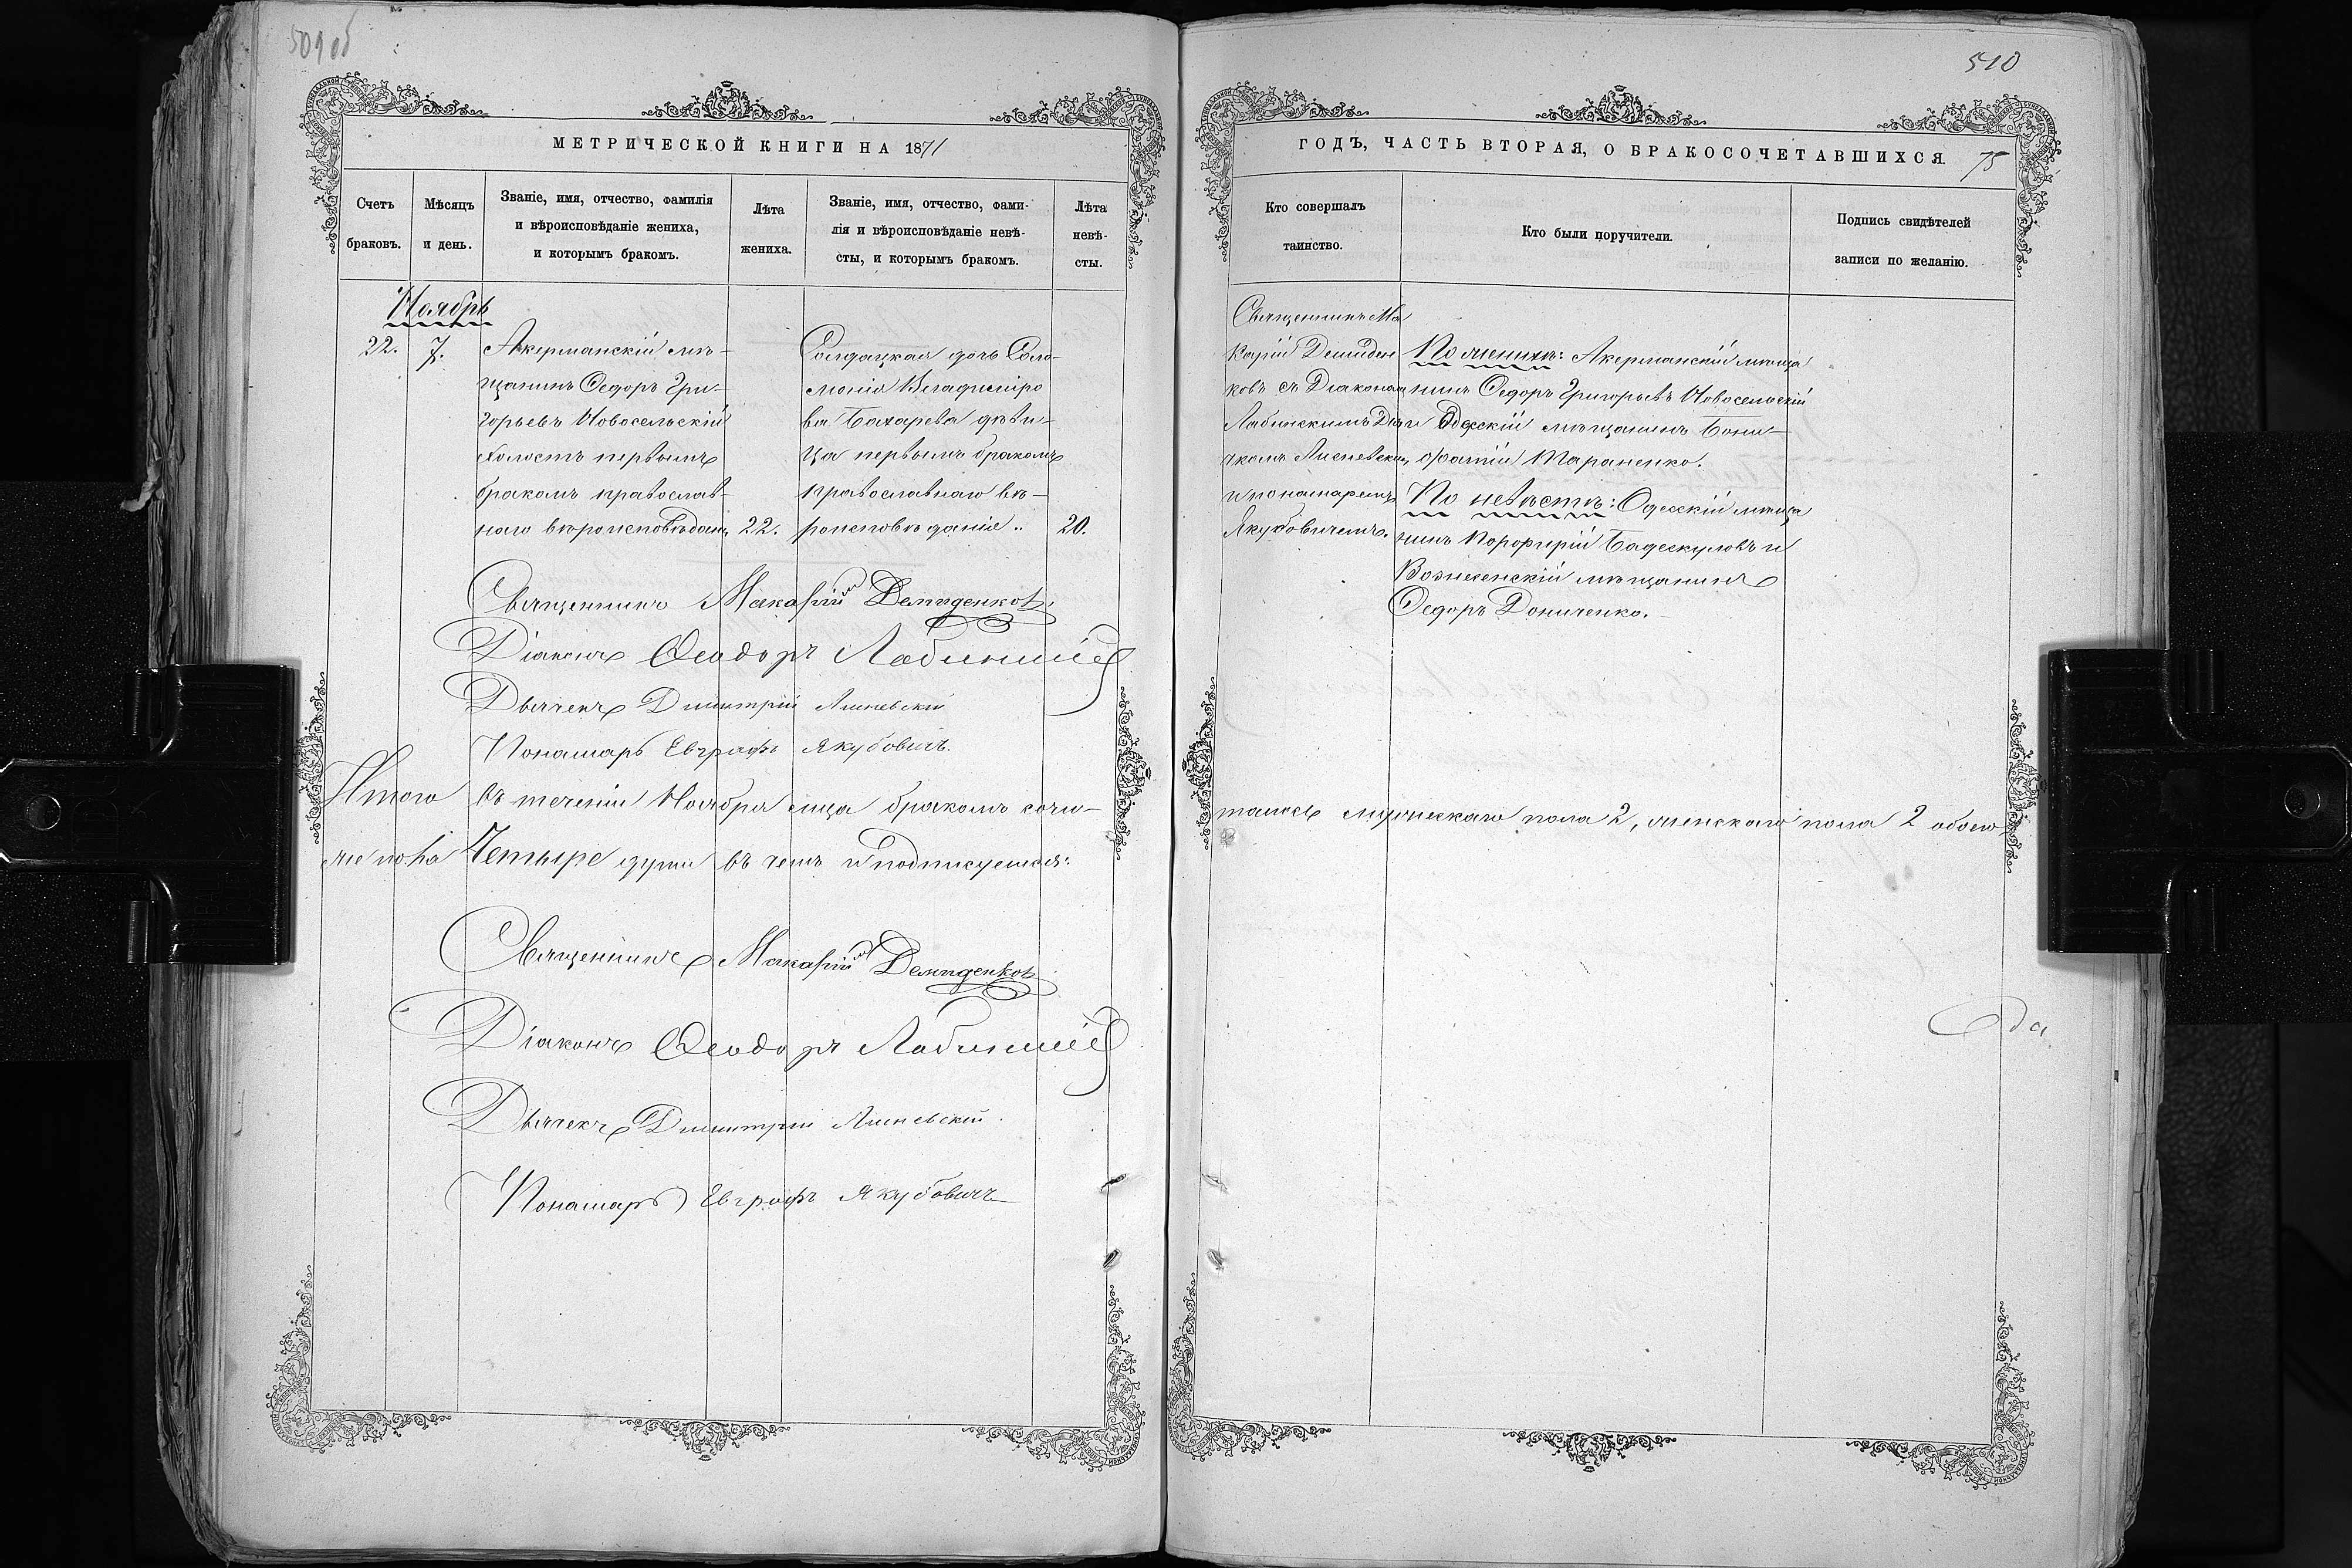 509 об
МЕТРИЧЕСКОЙ КНИГИ НА 1871
Счетъ браковъ.
Мѣсяцъ и день.
Званіе, имя, отчество, фамилія
и вѣроисповѣданіе жениха,
и которымъ бракомъ.
Лѣта
жениха.
Званіе, имя, отчество, фами-
лія и вѣроисповѣданіе невѣ-
сты, и которымъ бракомъ.
Лѣта
невѣ-
сты.
Ноябрь
22.
7.
Акерманскій мѣ-
щанинъ Ѳедоръ Гри-
горьевъ Новосельскій
холостъ первымъ
бракомъ православ-
наго вѣроисповѣдан,
22.
Солдацкая дочь Соло-
монія Владиміро
ва Бахарева дѣви-
ца первымъ бракомъ
православнаго вѣ-
роисповѣданія
20.
Священникъ Макарій Демиденковъ
Діаконъ Ѳеодоръ Лабинскій
Дьячекъ Димитрій Лисневскій
Пономарь Евграфъ Якубовичъ.
Итого въ теченіи Ноября мца бракомъ сочи-
же пола Четыре души въ чемъ и подписуемся:
Священникъ Макарій Демиденковъ
Діаконъ Ѳеодоръ Лабинскій
Дьячекъ Димитрій Лисневскій.
Пономарь Евграфъ Якубовичъ
510
ГОДЪ, ЧАСТЬ ВТОРАЯ, О БРАКОСОЧЕТАВШИХСЯ.
75
Кто совершалъ
таинство.
Кто были поручители.
Подпись свидѣтелей
записи по желанію.
Священникъ Ма
карій Демиден
ковъ съ Діакономъ
Лабинскимъ Дья
чкомъ Лисневским,
и пономаремъ
Якубовичемъ.
По женихѣ: Акерманскій мѣща
нинъ Ѳедоръ Григорьевъ Новосельскій
и Одесскій мѣщанинъ Бони-
фатій Тараненко.
По невѣстѣ: Одесскій мѣща
нинъ Порфирій Бадескуловъ и
Вознесенскій мѣщанинъ
Ѳедоръ Дониченко.
тались мужескаго пола 2, женскаго пола 2 обоего